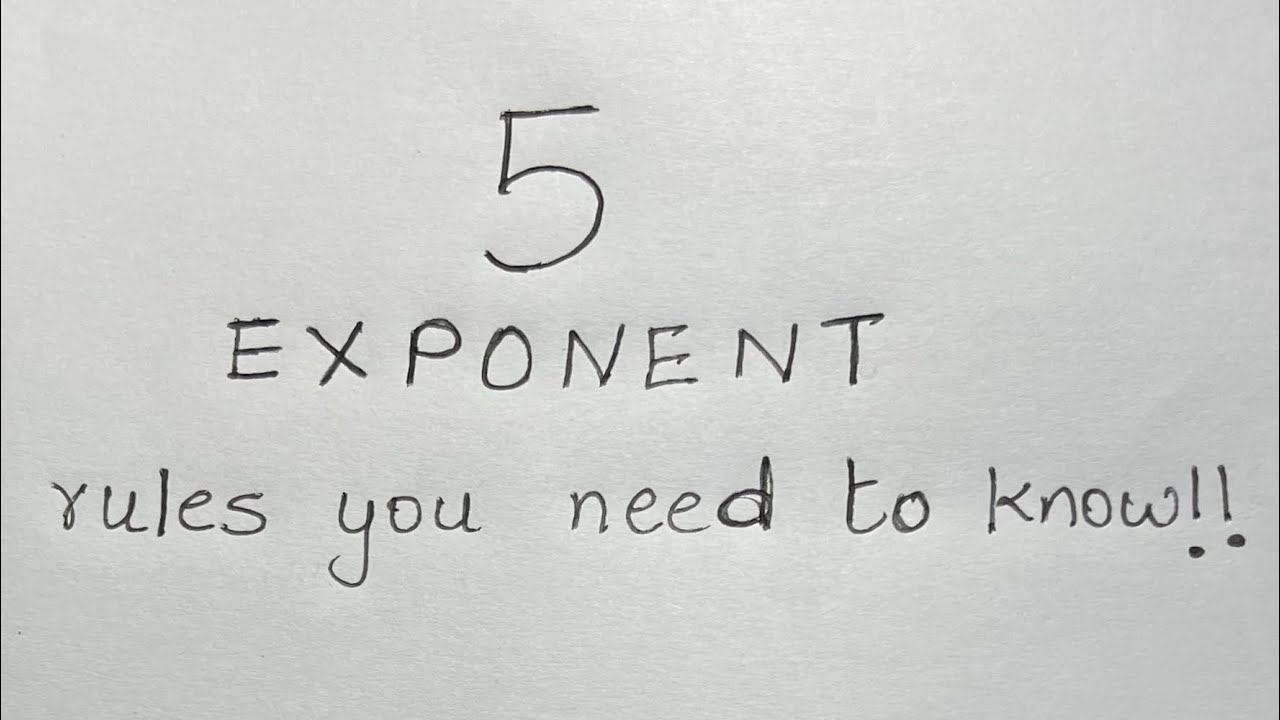 5
EXPONENT
rules you need to know!!